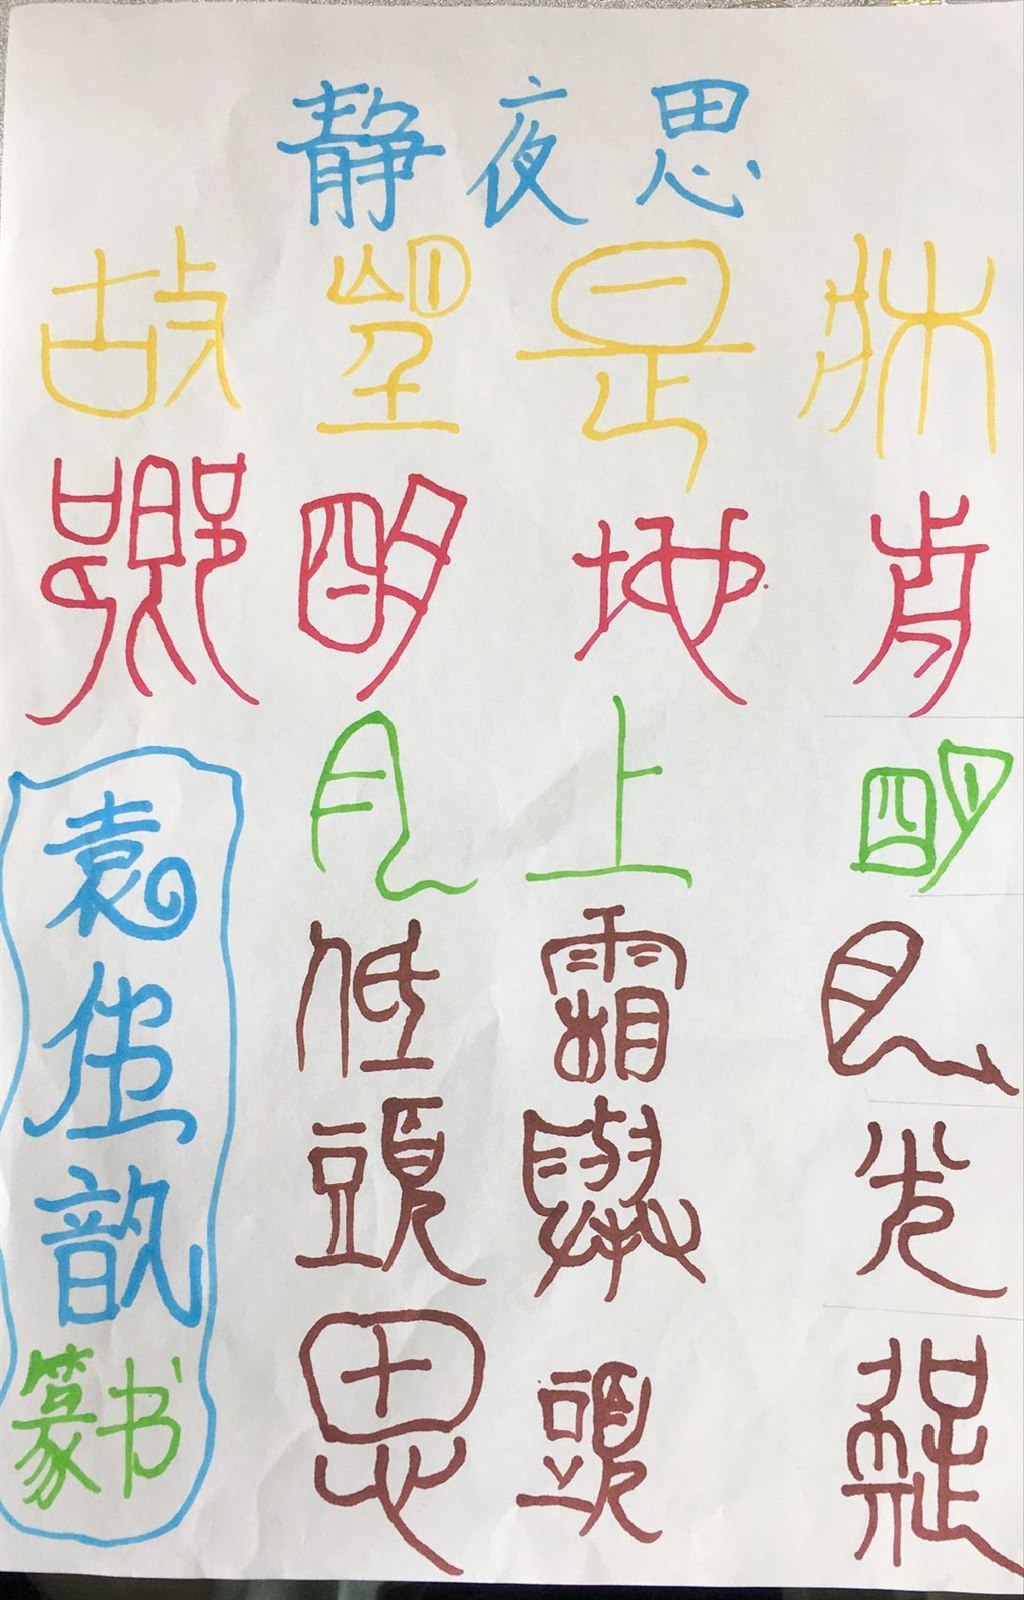 静夜思
牀前明月光疑
是地上霜舉頭
望明月低頭思
故鄉
袁佳歆
篆书